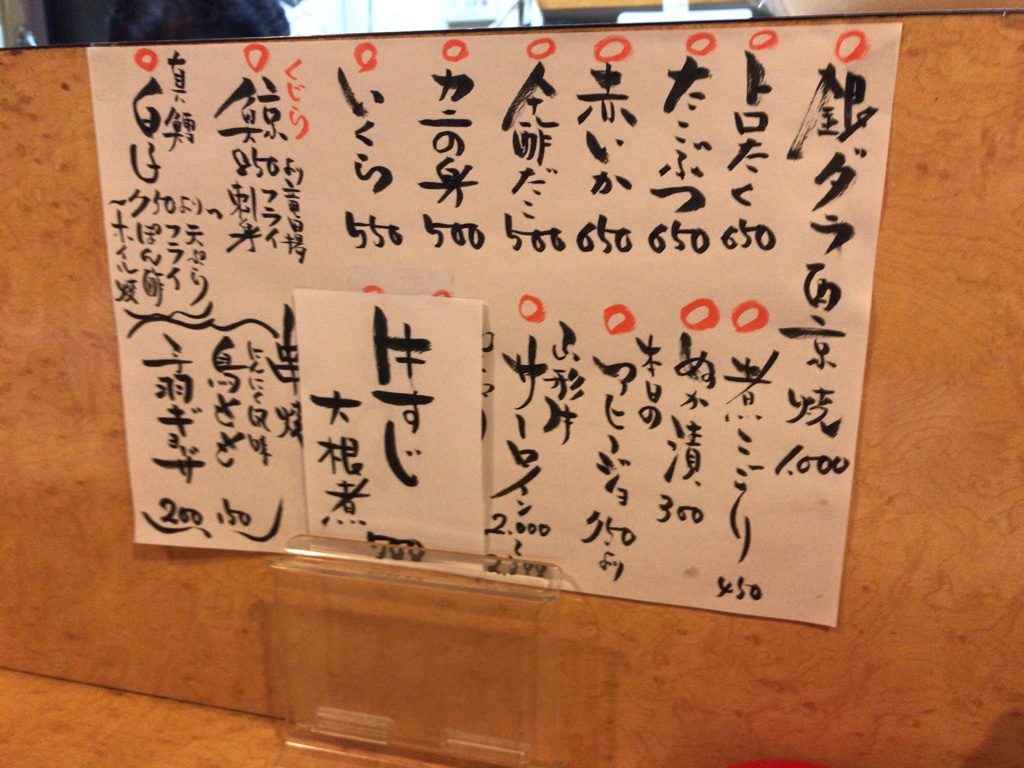 銀ダラ西京焼 1.000
トロたく 650
たこぶつ 650
赤いか 650
全酢だこ 500
カニの身 500
いくら 550
くじら
鯨
850より
竜田揚
フライ
刺身
真鱈
白子
750より
天ぷら
フライ
ぽん酢
ホイル焼
煮こごり 450
ぬか漬 300
本日の
アヒージョ 750より
山形牛
サーロイン 2.000
牛すじ
大根煮
串焼
にんにく風味
鳥ささ 150
手羽ギョーザ 200